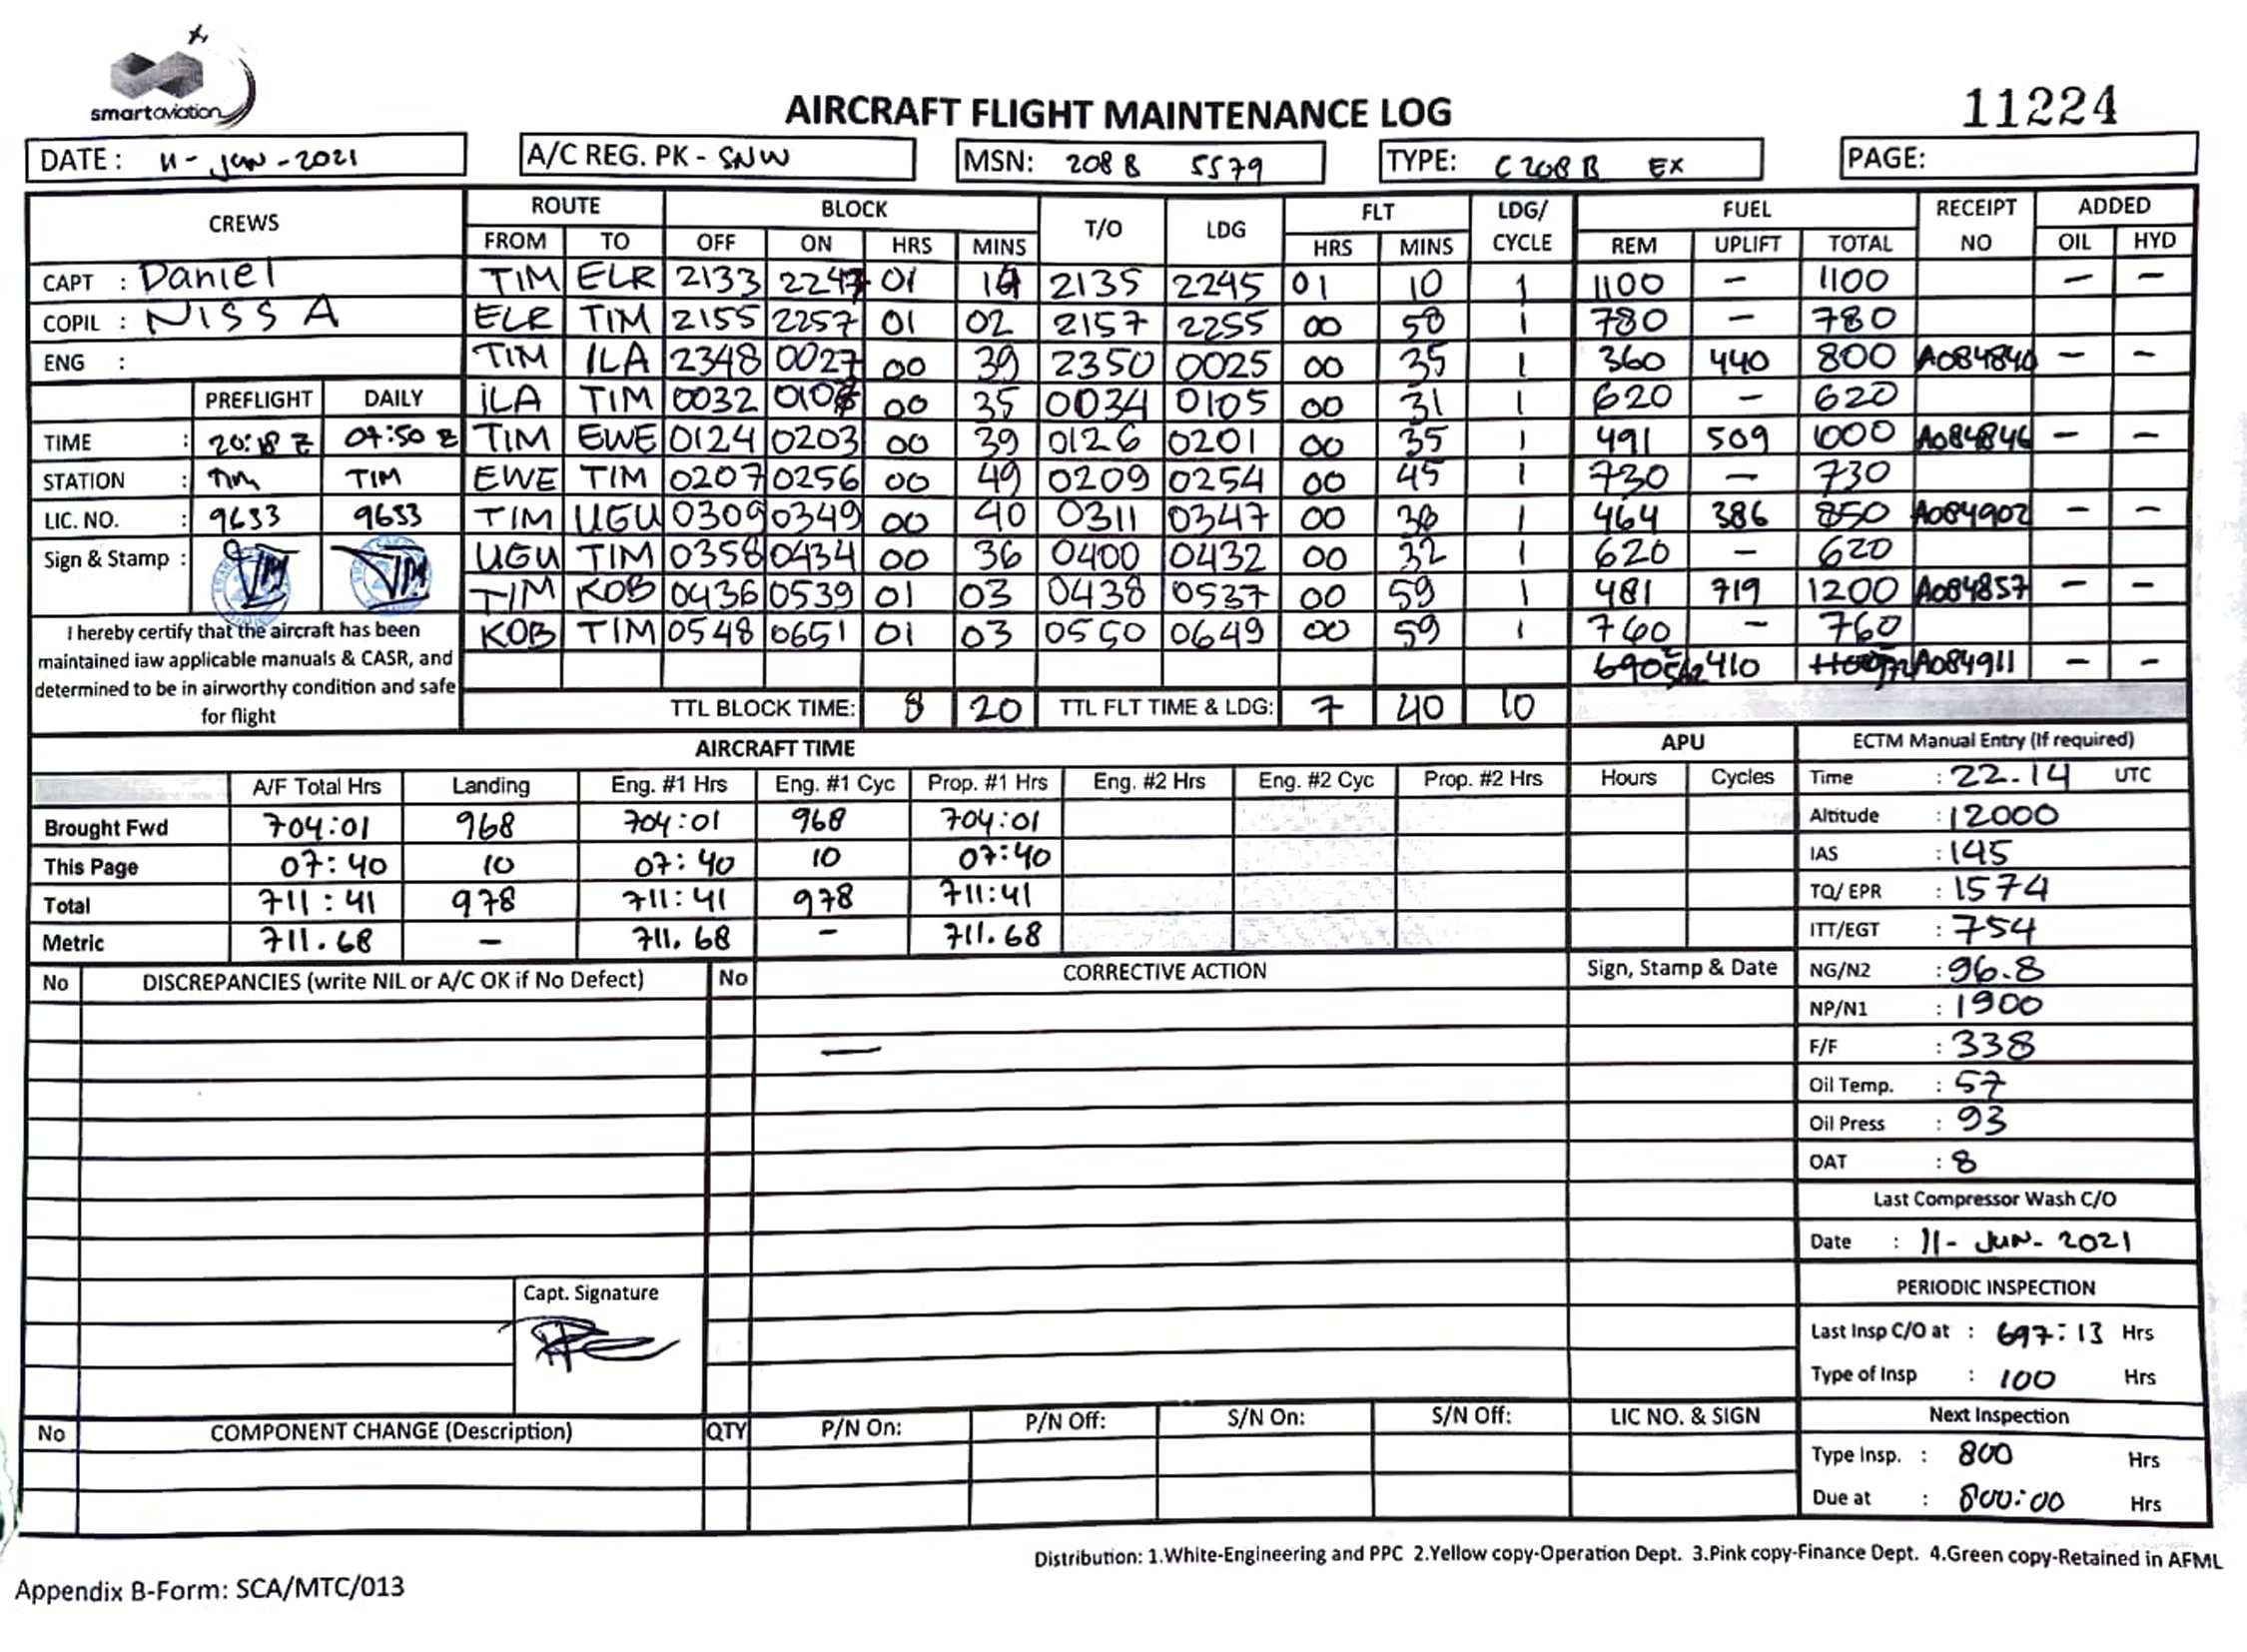 smartaviation
AIRCRAFT FLIGHT MAINTENANCE LOG
11224
DATE: 11-JUN-2021 A/C REG. PK - SNW MSN: 208B 5579 TYPE: C208B EX PAGE:
CREWS ROUTE BLOCK T/O LDG FLT LDG/ CYCLE FUEL RECEIPT NO ADDED
FROM TO OFF ON HRS MINS HRS MINS REM UPLIFT TOTAL OIL HYD
CAPT : Daniel TIM ELR 2133 2247 01 14 2135 2245 01 10 1 1100 – 1100 – –
COPIL : NISSA ELR TIM 2155 2257 01 02 2157 2255 00 58 1 780 – 780
ENG : TIM ILA 2348 0027 00 39 2350 0025 00 35 1 360 440 800 A084840 – –
PREFLIGHT DAILY ILA TIM 0032 0107 00 35 0034 0105 00 31 1 620 – 620
TIME : 20:18 Z 07:50 Z TIM EWE 0124 0203 00 39 0126 0201 00 35 1 491 509 1000 A084846 – –
STATION : TIM TIM EWE TIM 0207 0256 00 49 0209 0254 00 45 1 730 – 730
LIC. NO. : 9633 9633 TIM UGU 0309 0349 00 40 0311 0347 00 36 1 464 386 850 A084902 – –
Sign & Stamp : UGU TIM 0358 0434 00 36 0400 0432 00 32 1 620 – 620
TIM KOB 0436 0539 01 03 0438 0537 00 59 1 481 719 1200 A084857 – –
I hereby certify that the aircraft has been KOB TIM 0548 0651 01 03 0550 0649 00 59 1 760 – 760
maintained iaw applicable manuals & CASR, and 690 410 A084911 – –
determined to be in airworthy condition and safe
for flight TTL BLOCK TIME: 8 20 TTL FLT TIME & LDG: 7 40 10
AIRCRAFT TIME APU ECTM Manual Entry (If required)
A/F Total Hrs Landing Eng. #1 Hrs Eng. #1 Cyc Prop. #1 Hrs Eng. #2 Hrs Eng. #2 Cyc Prop. #2 Hrs Hours Cycles Time : 22.14 UTC
Brought Fwd 704:01 968 704:01 968 704:01 Altitude : 12000
This Page 07:40 10 07:40 10 07:40 IAS : 145
Total 711:41 978 711:41 978 711:41 TQ/ EPR : 1574
Metric 711.68 – 711.68 – 711.68 ITT/EGT : 754
No DISCREPANCIES (write NIL or A/C OK if No Defect) No CORRECTIVE ACTION Sign, Stamp & Date NG/N2 : 96.8
NP/N1 : 1900
— F/F : 338
Oil Temp. : 57
Oil Press : 93
OAT : 8
Last Compressor Wash C/O
Date : 11-JUN-2021
Capt. Signature PERIODIC INSPECTION
Last Insp C/O at : 697:13 Hrs
Type of Insp : 100 Hrs
No COMPONENT CHANGE (Description) QTY P/N On: P/N Off: S/N On: S/N Off: LIC NO. & SIGN Next Inspection
Type Insp. : 800 Hrs
Due at : 800:00 Hrs
Distribution: 1.White-Engineering and PPC 2.Yellow copy-Operation Dept. 3.Pink copy-Finance Dept. 4.Green copy-Retained in AFML
Appendix B-Form: SCA/MTC/013